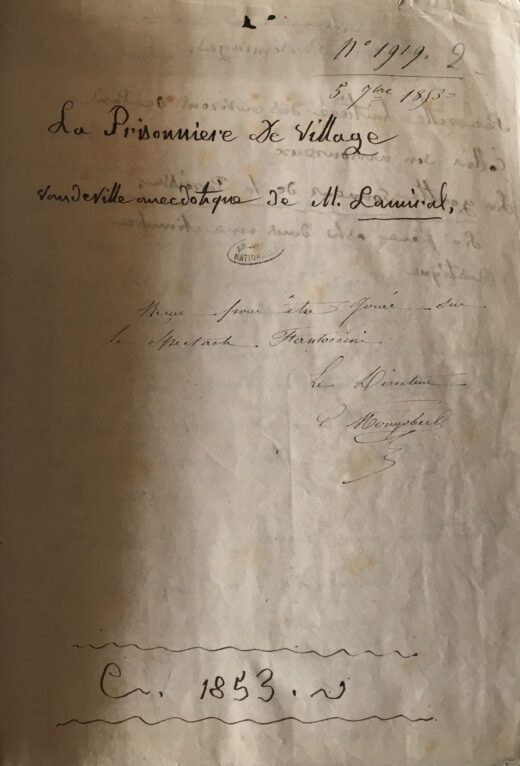 N° 1919. 2
5. 9bre 1853
La Prisonniere De Village
vaudeville anecdotique de M. Lamiral,
ARCH
NATION
pour être jouée sur
le Spectacle Fantoccini.
Le Directeur
1853.